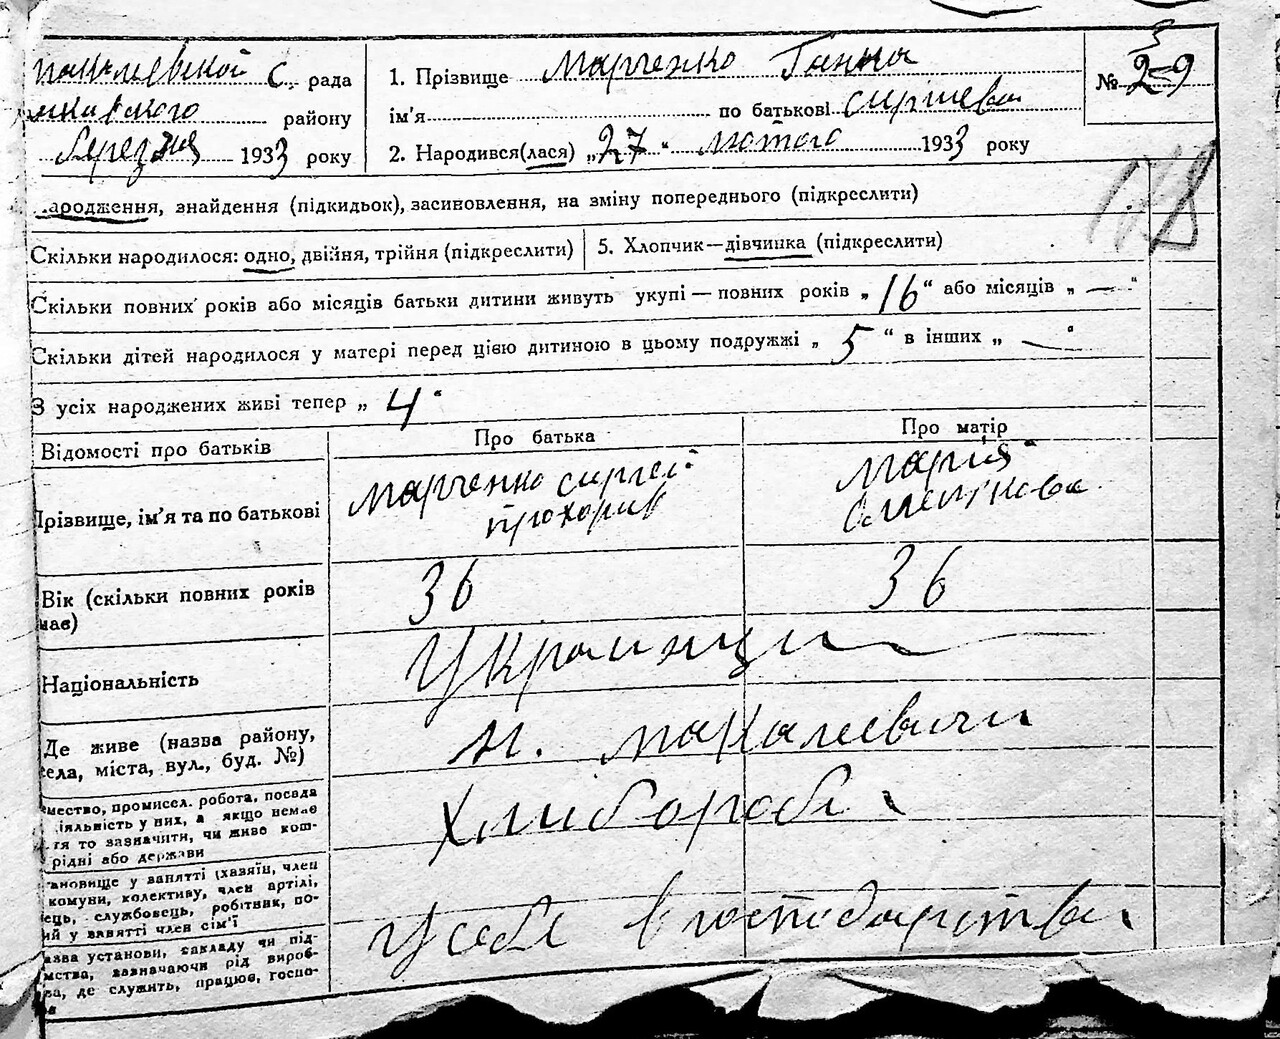 с. рада
району
березня 1933 року
1. Прізвище Марченко Ганна
ім'я по батькові Сиргіевна
2. Народився(лася) „27" лютого 1933 року
№ 29
ародження, знайдення (підкидьок), засиновлення, на зміну попереднього (підкреслити)
Скільки народилося: одно, двійня, трійня (підкреслити)
5. Хлопчик—дівчинка (підкреслити)
Скільки повних років або місяців батьки дитини живуть укупі — повних років „16" або місяців „—"
Скільки дітей народилося у матері перед цією дитиною в цьому подружжі „5" в інших „—"
З усіх народжених живі тепер „4"
Відомості про батьків
Про батька
Про матір
Прізвище, ім'я та по батькові
Марченко Сиргей
Прохорив
Мария
Вік (скільки повних років
має)
36
36
Національність
Украинци
Де живе (назва району,
села, міста, вул., буд. №)
с. Макалевичи
емество, промисел. робота, посада
іяльність у них, а якщо немає
тя то зазначити, чи живе кош-
рідні або держави
Хлибороби
ановище у занятті (хазяїн, член
комуни, колективу, член артілі,
ець, службовець, робітник, по-
ий у занятті член сім'ї
азва установи, закладу чи під-
мства, зазначаючи рід вироб-
ва, де служить, працює, госпо-
ва
У себе в господарства